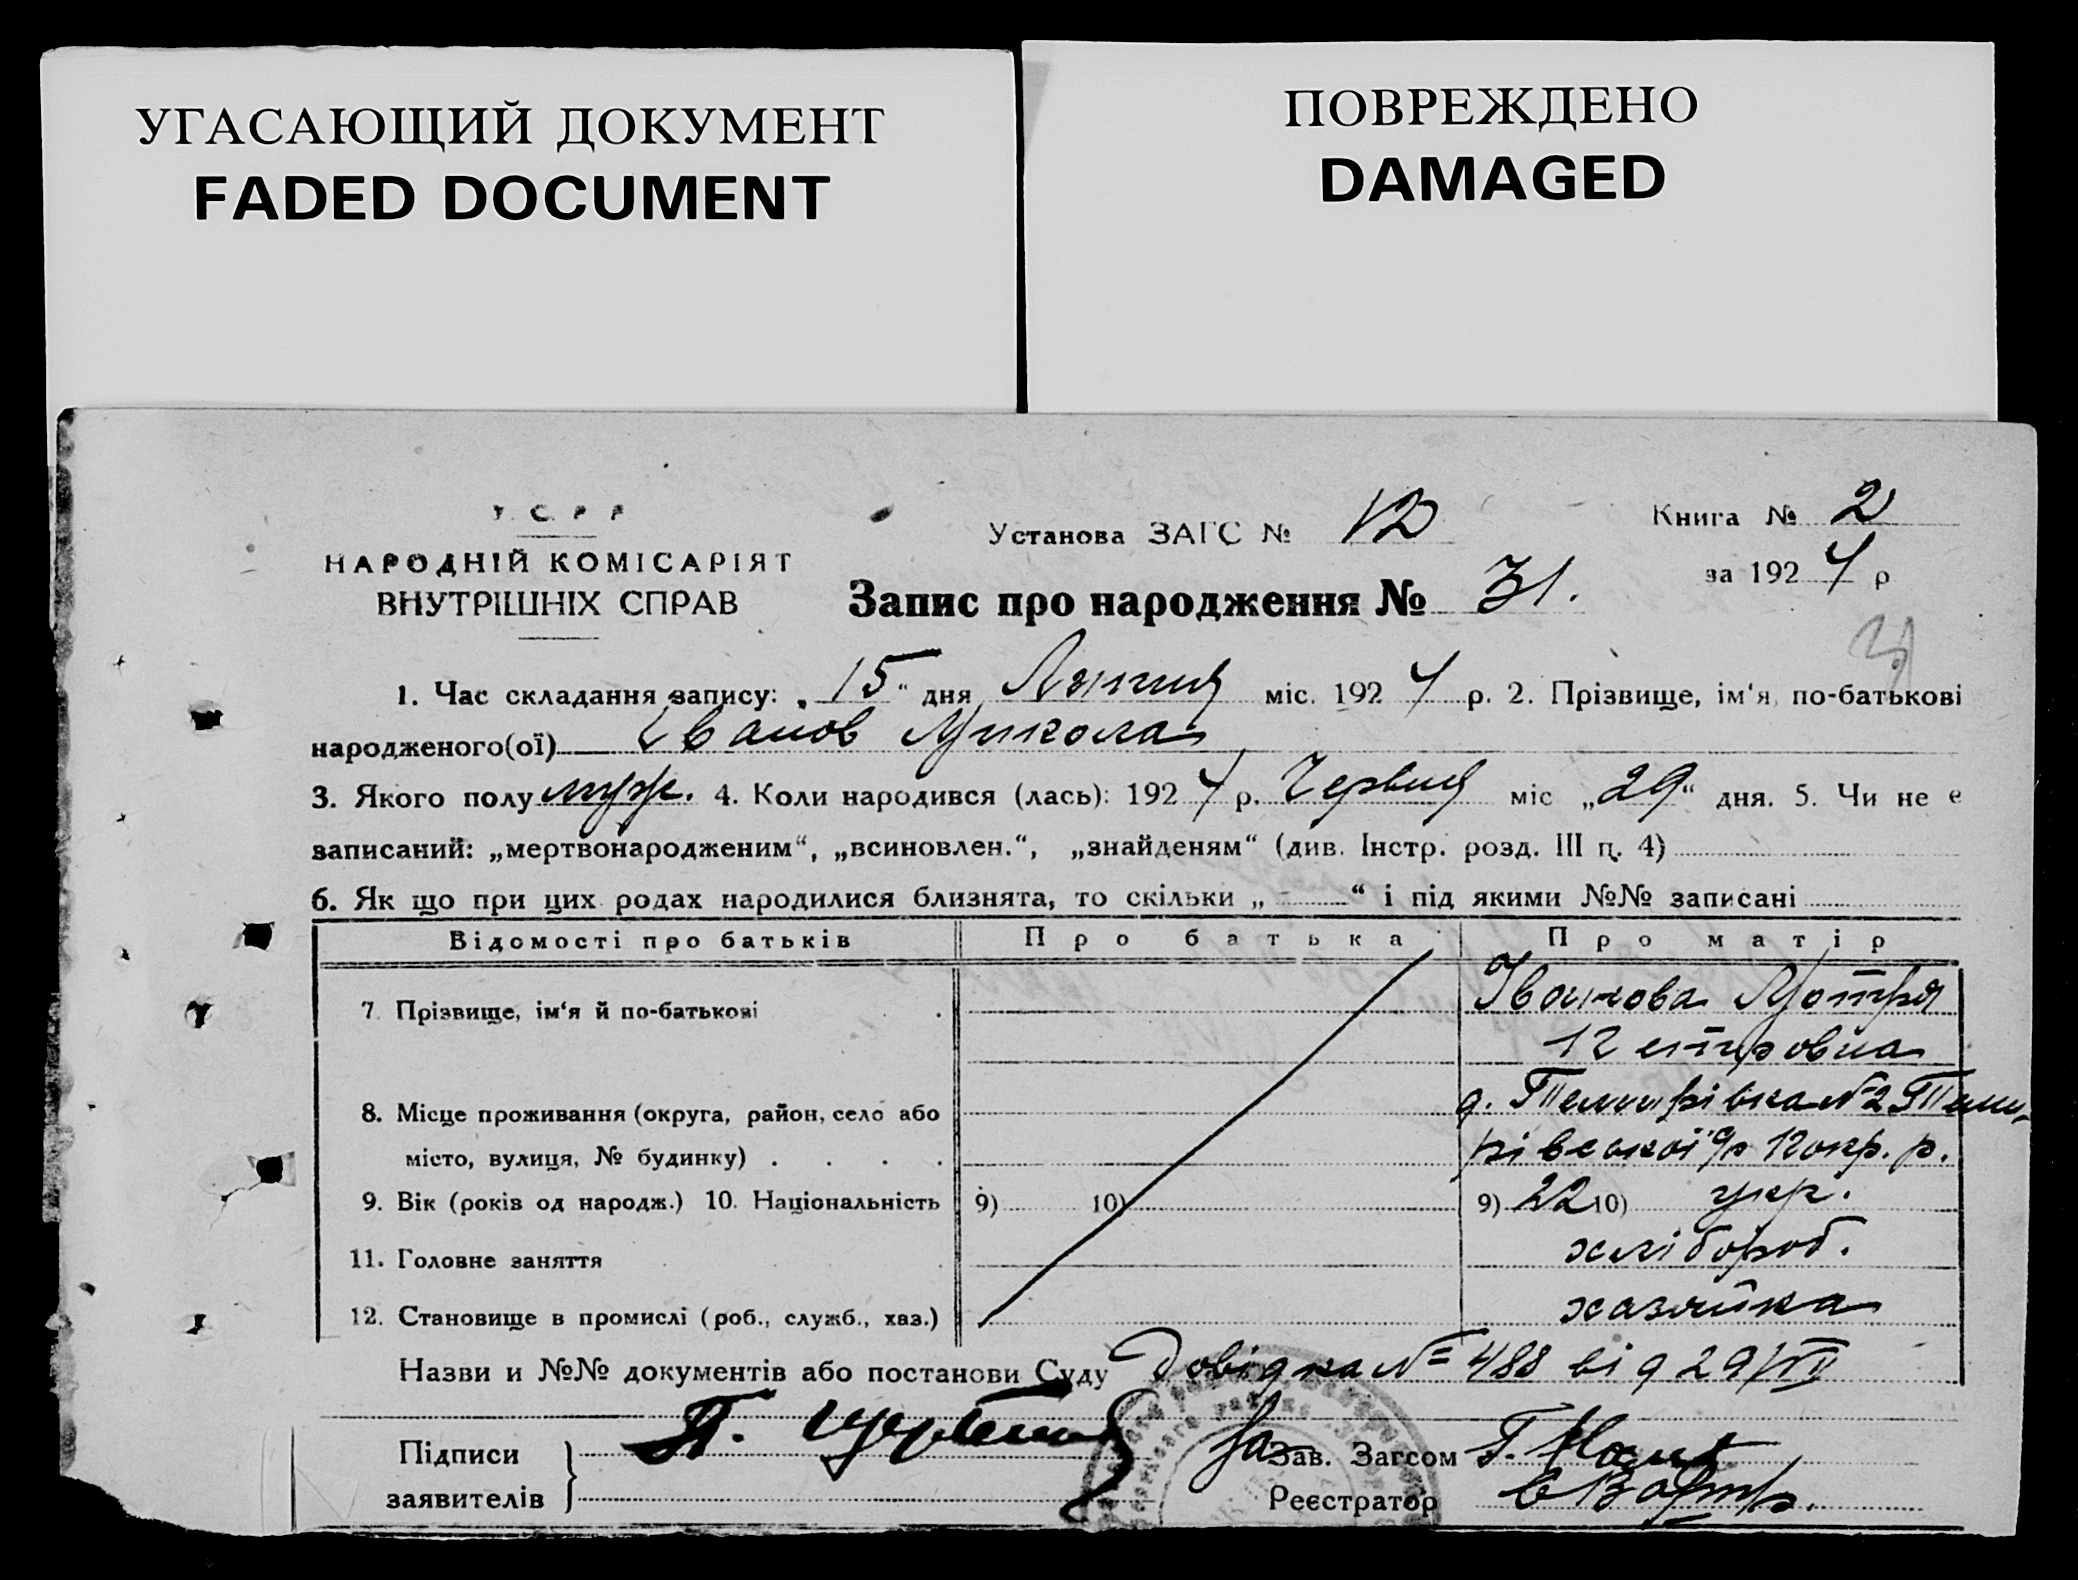 УГАСАЮЩИЙ ДОКУМЕНТ
FADED DOCUMENT
ПОВРЕЖДЕНО
DAMAGED
У. С. Р. Р.
НАРОДНІЙ КОМІСАРІЯТ
ВНУТРІШНІХ СПРАВ
Установа ЗАГС № 12
Книга № 2
за 1924 р
Запис про народження № 31.
1. Час складання запису: „15“ дня Липня міс. 1924 р. 2. Прізвище, ім‘я, по-батькові
народженого(ої) Іванов Микола
3. Якого полу муж. 4. Коли народився (лась): 1924 р. Червня міс „29“ дня. 5. Чи не є
записаний: „мертвонародженим“, „всиновлен.“, „знайденям“ (див. Інстр. розд. III п. 4)
6. Як що при цих родах народилися близнята, то скільки „ - “ і під якими №№ записані
Відомості про батьків Про батька Про матір
7. Прізвище, ім‘я й по-батькові Іванова Мотря
Петровна
8. Місце проживання (округа, район, село або д. Темирівка №2 Теми-
місто, вулиця, № будинку) . . . . рівської р.
9. Вік (років од народж.) 10. Національність 9) 10) 9) 22 10) укр.
11. Головне заняття хлібороб.
12. Становище в промислі (роб., служб., хаз.) хазяйка
Назви и №№ документів або постанови Суду Довідка № 488 від 29/VII
Підписи
заявителів
П.
За Зав. Загсом Г.
Реєстратор